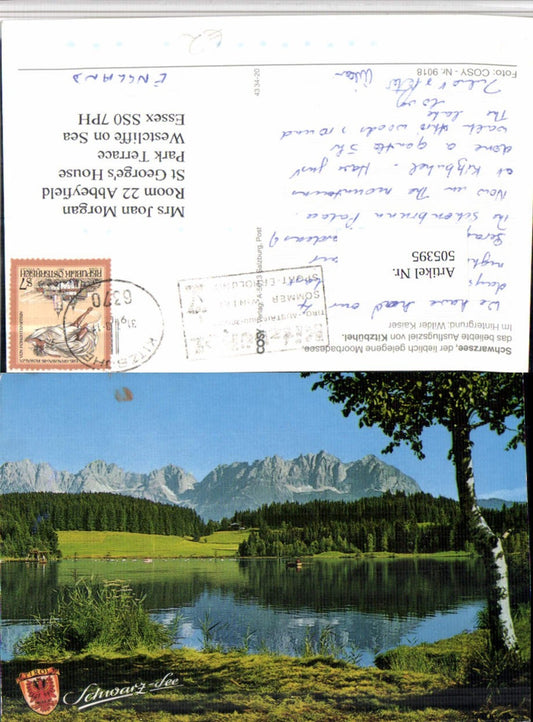 Schwarzsee, der lieblich gelegene Moorbadesee,
das beliebte Ausflugsziel von Kitzbühel.
Im Hintergrund Wilder Kaiser
We have had our 4
days
nights
Leroy
The Schönbrunn Palace.
Now in The mountains
at Kitzbuhel - Have just
done a gentle 5k
walk thro' woods & round
The lake
Love
Peter
Artikel Nr.
505395
COSY Verlag, A-5013 Salzburg, Post
4334-20
Foto: COSY - Nr. 9018
TIROL
SOMMER
WINTER
SPORT-ERHOLUNG
6370
KITZBÜHEL
REPUBLIK ÖSTERREICH
S7
Mrs Joan Morgan
Room 22 Abbeyfield
St George's House
Park Terrace
Westcliffe on Sea
Essex SS0 7PH
ENGLAND
TIROL
Schwarz-See